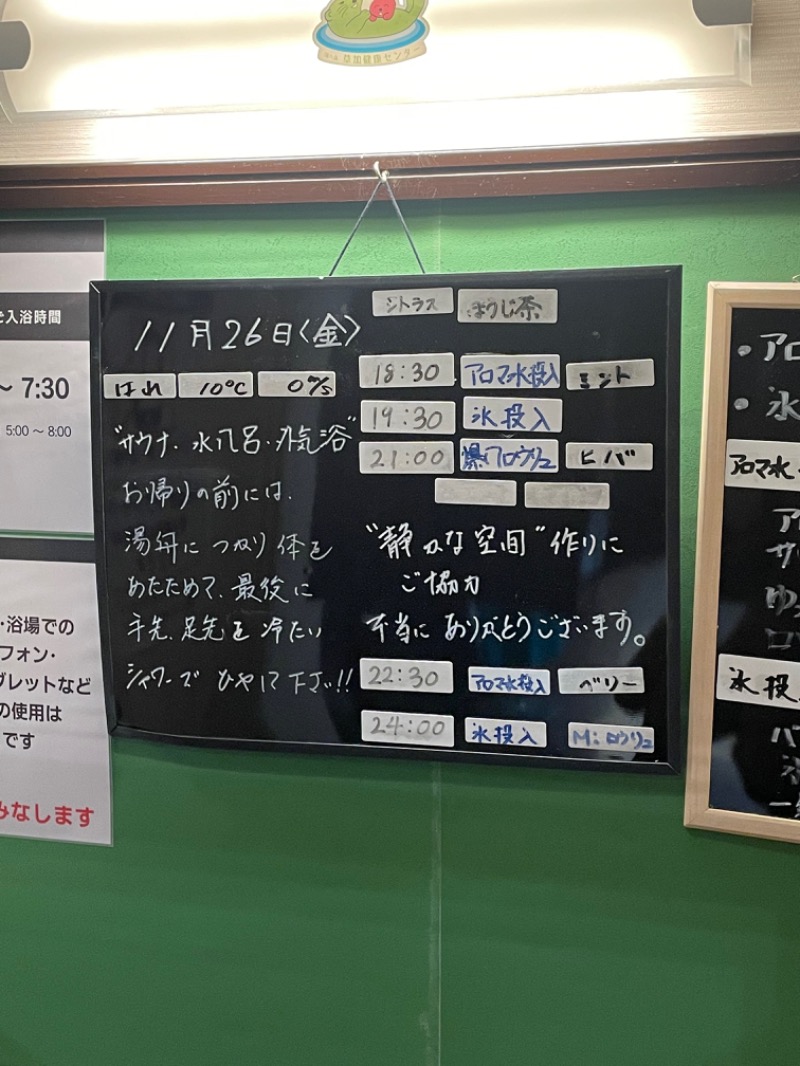 草加健康センター
入浴時間
～ 7:30
5:00～8:00
・浴場での
フォン・
ブレットなど
の使用は
です
みなします
11月26日(金)
はれ 10℃ 0m/s
"サウナ・水風呂・外気浴"
お帰りの前には、
湯舟につかり体を
あたためて、最後に
手先、足先を冷たい
シャワーでひやして下さい!!
シトラス ほうじ茶
18:30 アロマ水投入 ミント
19:30 氷投入
21:00 爆風ロウリュ ヒバ
"静かな空間"作りに
ご協力
本当にありがとうございます。
22:30 アロマ水投入 ベリー
24:00 氷投入 M:ロウリュ
・アロ
・氷
アロマ水
ア
サ
ゆ
ロ
氷投
パ